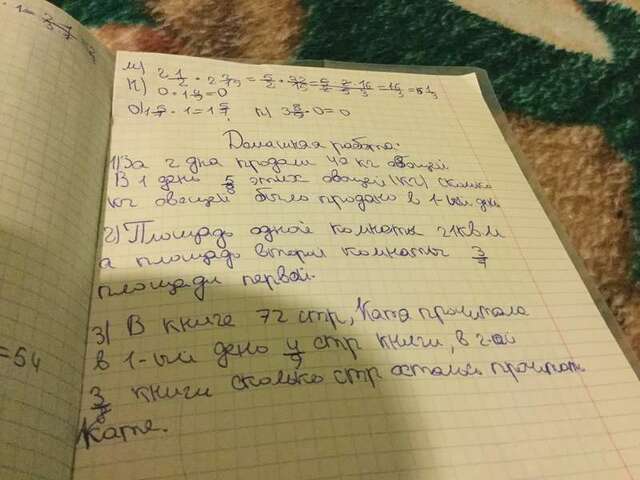 м) 2 1/2 · 2
п) 0 · 1 =0
о) 1 5/7 · 1 = 1 5/7 п) 3 8/9 · 0 = 0
Домашняя работа.
1) За 2 дна продали 40 кг овощей
В 1 день 5/8 этих овощей (кг) сколько
кг овощей было продано в 1-ый день
2) Площадь одной комнаты 21 кв м
а площадь второй комнаты 3/7
площади первой.
3) В книге 72 стр, Катя прочитала
в 1-ый день 4/9 стр книги, в 2-ой
3/8 книги сколько стр осталось прочитать
Кате.
=54